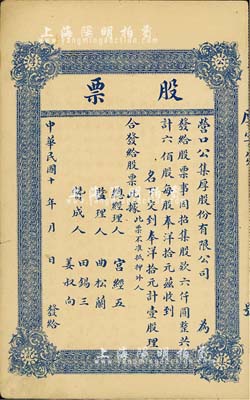 上海陽明拍賣
股票
營口公集厚股份有限公司 為
發給股票事因招集股款六仟圓整共
計六佰股每股奉洋拾元茲收到
名下交到奉洋拾元計壹股理
合發給股票爲此據 此票不准抵押外人
總經理人 宮經五
監理人 曲松蘭
田錫三
成人 姜叔向
中華民國十 年 月 日 發給